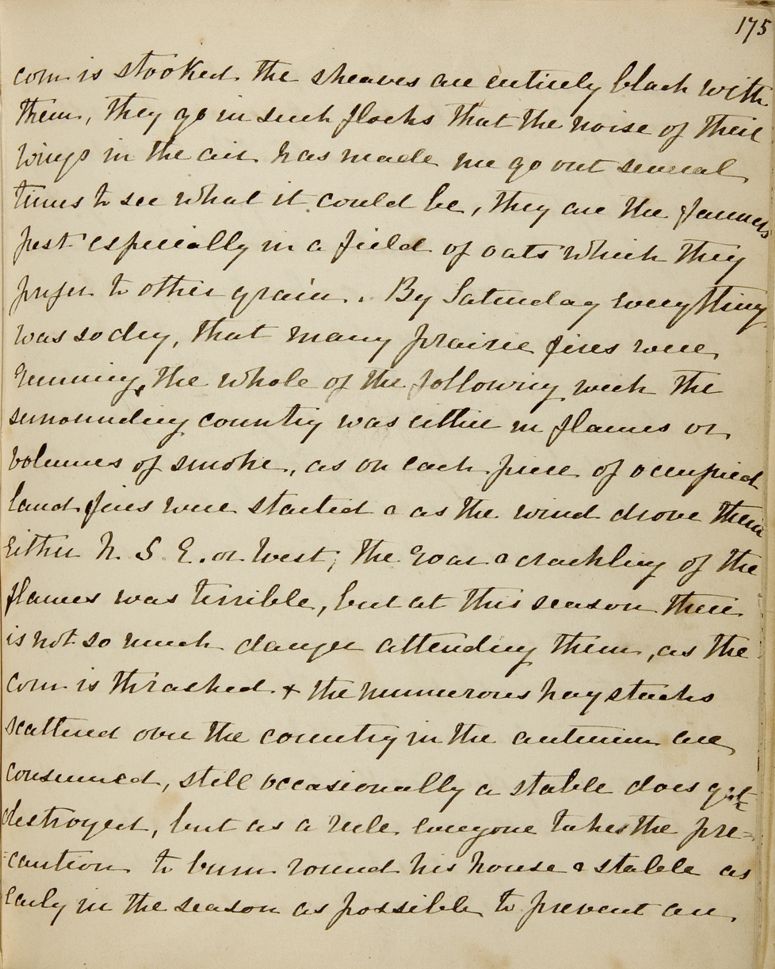 175
corn is stooked the sheaves are entirely black with
them, they go in such flocks that the noise of their
wings in the air has made me go out several
times to see what it could be, they are the farmers
pest especially in a field of oats which they
prefer to other grain. By Saturday everything
was so dry, that many prairie fires were
running, the whole of the following week the
surrounding country was either in flames or
volumes of smoke, as on each piece of occupied
land fires were started & as the wind drove them
either N. S. E. or West; the roar & crackling of the
flames was terrible, but at this season there
is not so much danger attending them, as the
corn is thrashed & the numerous haystacks
scattered over the country in the autumn are
consumed, still occasionally a stable does get
destroyed, but as a rule everyone takes the pre-
-caution to burn round his house & stable as
early in the season as possible to prevent an